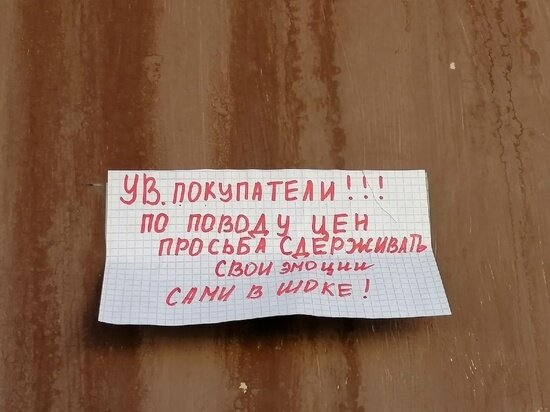 УВ. ПОКУПАТЕЛИ!!!
ПО ПОВОДУ ЦЕН
ПРОСЬБА СДЕРЖИВАТЬ
СВОИ ЭМОЦИИ
САМИ В ШОКЕ!